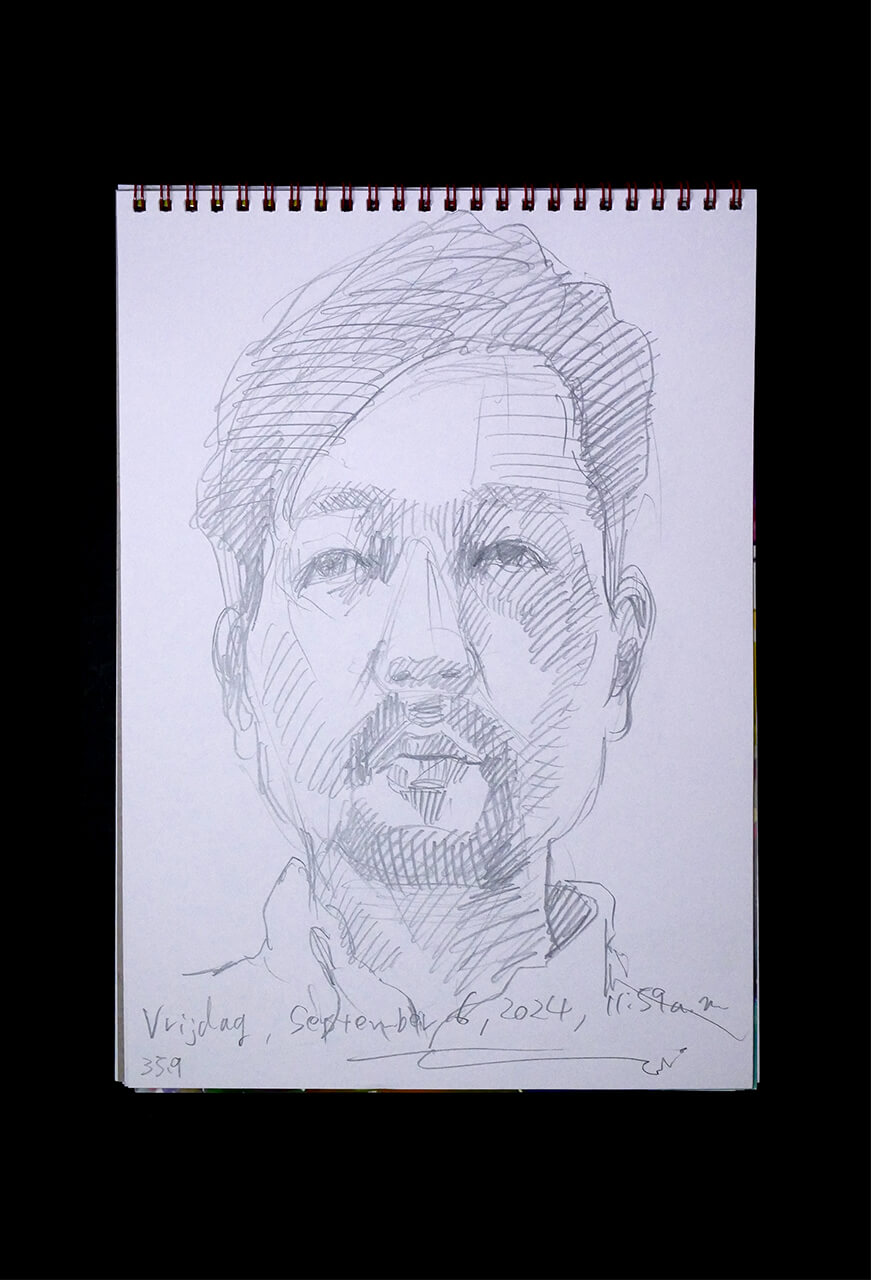 Vrijdag, September 6, 2024, 11:59 a.m
359